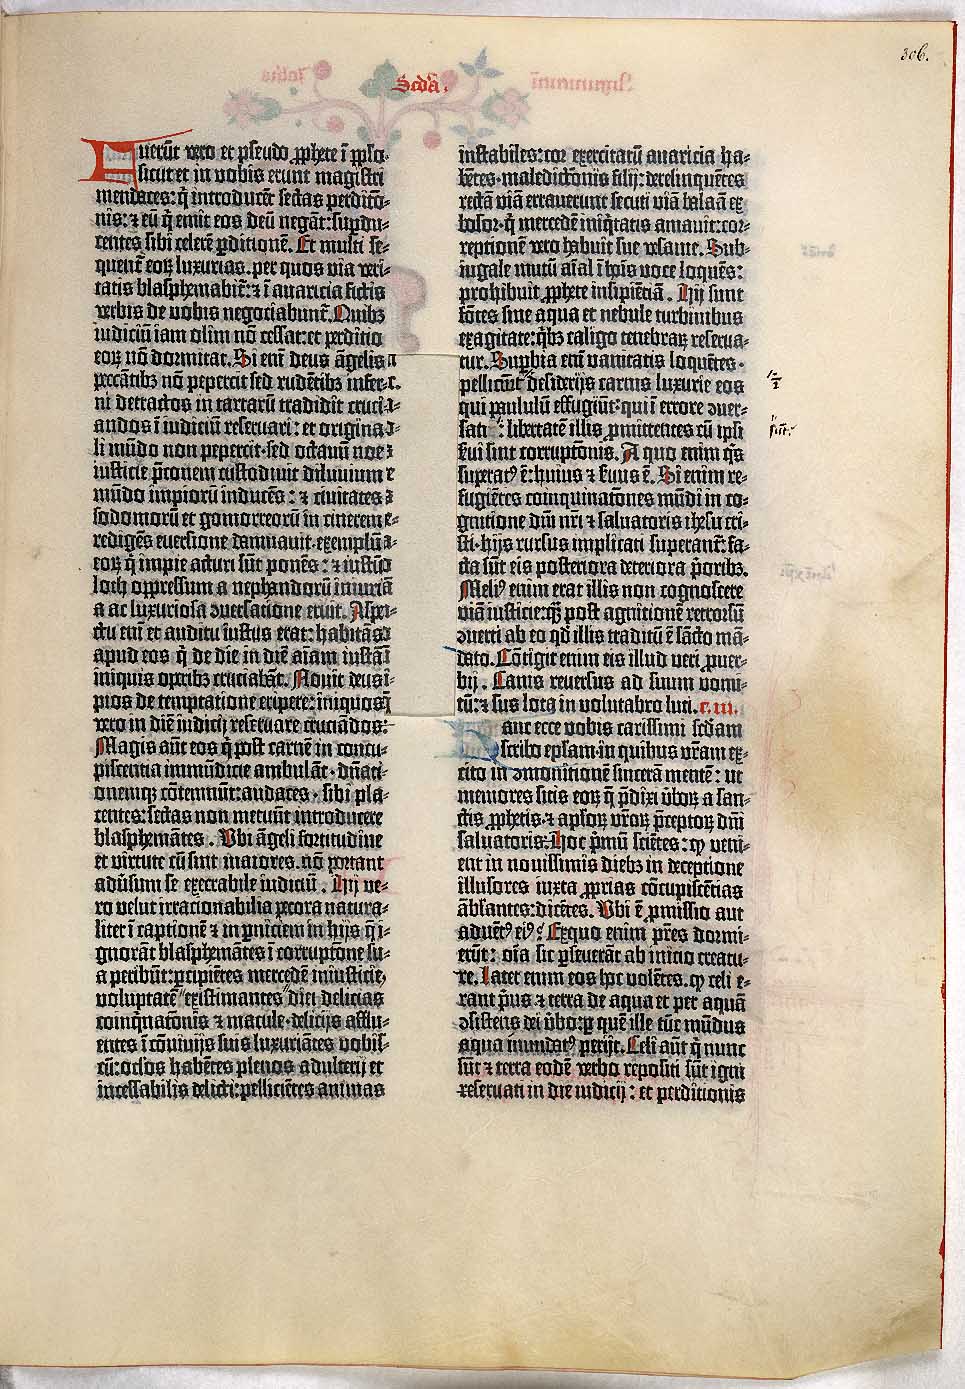 306.
Scd̄a.
Fuerūt vero et pseudo ꝓphete ī ppl̄o·
sicut et in vobis erunt magistri
mendaces: q̄ introducēt sectas perditō-
nis: ⁊ eū q̄ emit eos deū negāt: supdu-
centes sibi celerē ꝑditionē. Et multi se-
quent᷑ eoꝝ luxurias. per quos via veri-
tatis blasphemabit᷑: ⁊ ī auaricia fictis
verbis de vobis negociabunt᷑. Quibꝫ
iudiciū iam olim nō cessat: et perditio
eoꝝ nō dormitat. Si eni deus āgelis
peccātibꝫ nō pepercit sed rudētibꝫ infer-
ni detractos in tartarū tradidit cruci-
andos ī iudiciū reseruari: et origina-
li mūdo non pepercit·sed octauū noe
iusticie p̄conem custodiuit diluuium
mūdo impiorū inducēs: ⁊ ciuitates
sodomorū et gomorreorū in cinerem
redigēs euersione damnauit·exemplū
eoꝝ q̄ impie acturi sūt ponēs: ⁊ iustū
loth oppressum a nephandorū iniuria
a ac luxuriosa ɔuersatione eruit. Aspe-
ctu eni et auditu iustus erat: habitās
apud eos q̄ de die in diē aīam iustā
iniquis operibꝫ cruciabāt. Nouit deus
pios de temptatione eripere: iniquos
vero in diē iudicij reseruare cruciādos:
Magis aūt eos q̄ post carnē in concu-
piscentia immūdicie ambulāt·dn̄ati-
onemqꝫ cōtemnūt: audaces·sibi pla-
centes: sectas non metuūt introducere
blasphemātes. Vbi āgeli fortitudine
et virtute cū sint maiores. nō portant
adūsum se execrabile iudiciū. Hij ve-
ro velut irracionabilia pecora natura-
liter ī captionē ⁊ in ꝑniciem in hijs q̄ i-
gnorāt blasphemātes ī corruptōne su-
a peribūt: ꝑcipiētes mercedē iniusticie,
voluptatē existimantes diei delicias
coinq̄natōnis ⁊ macule·delicijs afflu-
entes ī cōuiuijs suis luxuriātes vobis-
cū: oc̄los habētes plenos adulterij et
incessabilis delicti: pellicientes animas
instabiles: cor exercitatū auaricia ha-
bētes·maledictōnis filij: derelinquētes
rectā viā errauerunt secuti viā balaā ex
bosor·q̄ mercedē iniq̄tatis amauit: cor-
reptionē vero habuit sue vesanie. Sub-
iugale mutū aīal ī hoīs voce loquēs:
prohibuit ꝓphete insipiētiā. Hij sunt
fōtes sine aqua et nebule turbinibus
exagitate: qͥbꝫ caligo tenebraꝝ reserua-
tur. Supbia eni vanitatis loquētes·
pelliciūt desiderijs carnis luxurie eos
qui paululū effugiūt: qui ī errore ɔuer-
sati: libertatē illis ꝓmittentes cū ipsi
s̄ui sint corruptōnis. A quo enim qͥs
superatꝰ ē: huius ⁊ s̄uus ē. Si enim re-
fugiētes coinquinatōnes mūdi in co-
gnitione dn̄i nr̄i ⁊ saluatoris ihesu cri-
sti·hijs rursus implicati superant᷑: fa-
cta sūt eis posteriora deteriora p̄oribꝫ.
Meliꝰ enim erat illis non cognoscere
viā iusticie: qꝫ post agnitionē retrorsū
ɔuerti ab eo qd̄ illis traditū ē sācto mā-
dato. Cōtigit enim eis illud veri ꝓuer-
bij. Canis reuersus ad suum vomi-
tū: ⁊ sus lota in volutabro luti. c. III.
Hanc ecce vobis carissimi scd̄am
scribo epsam·in quibus vr̄am ex-
cito in ɔmonitionē sincerā mentē: ut
memores sitis eoꝝ q̄ p̄dixi v̄boꝝ a san-
ctis ꝓphetis·⁊ apl̄oꝝ vr̄oꝝ p̄ceptoꝝ dn̄i
saluatoris. Hoc p̄mū sciētes: ꝙ veni-
ent in nouissimis diebꝫ in deceptione
illusores iuxta ꝓprias cōcupiscētias
ābl̄antes: dicētes. Vbi ē ꝓmissio aut
aduētꝰ eiꝰ? Exquo enim pr̄es dormi-
erūt: oīa sic ꝑseuerāt ab inicio creatu-
re. Latet enim eos hoc volētes. ꝙ celi e-
rant p̄us ⁊ terra de aqua et per aquā
ɔsistens dei v̄bo: ꝑ quē ille tūc mūdus
aqua inundatꝰ perijt. Celi aūt q̄ nunc
sūt ⁊ terra eodē verbo repositi sūt igni
reseruati in diē iudicij: et perditionis